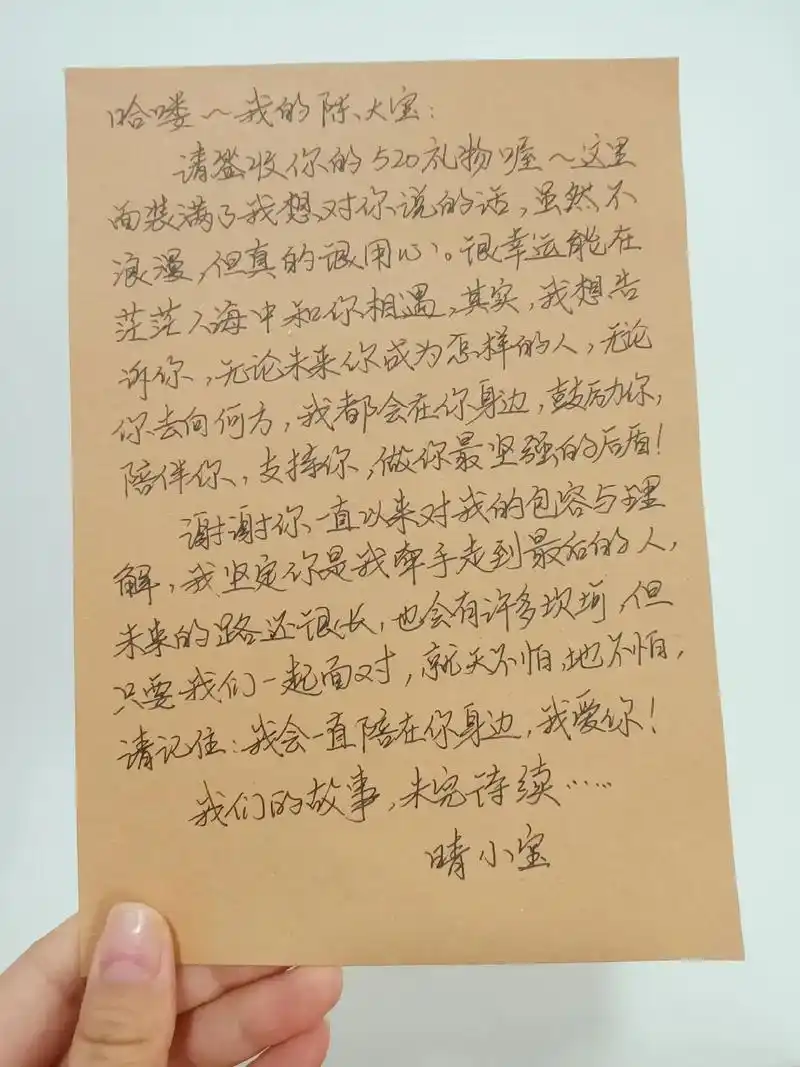 哈喽～我的陈大宝：
请签收你的520礼物喔～这里
面装满了我想对你说的话，虽然不
浪漫，但真的很用心。很幸运能在
茫茫人海中和你相遇，其实，我想告
诉你，无论未来你成为怎样的人，无论
你去向何方，我都会在你身边，鼓励你，
陪伴你，支持你，做你最坚强的后盾！
谢谢你一直以来对我的包容与理
解，我坚定你是我牵手走到最后的人，
未来的路还很长，也会有许多坎坷，但
只要我们一起面对，就天不怕，地不怕，
请记住：我会一直陪在你身边，我爱你！
我们的故事，未完待续……
晴小宝